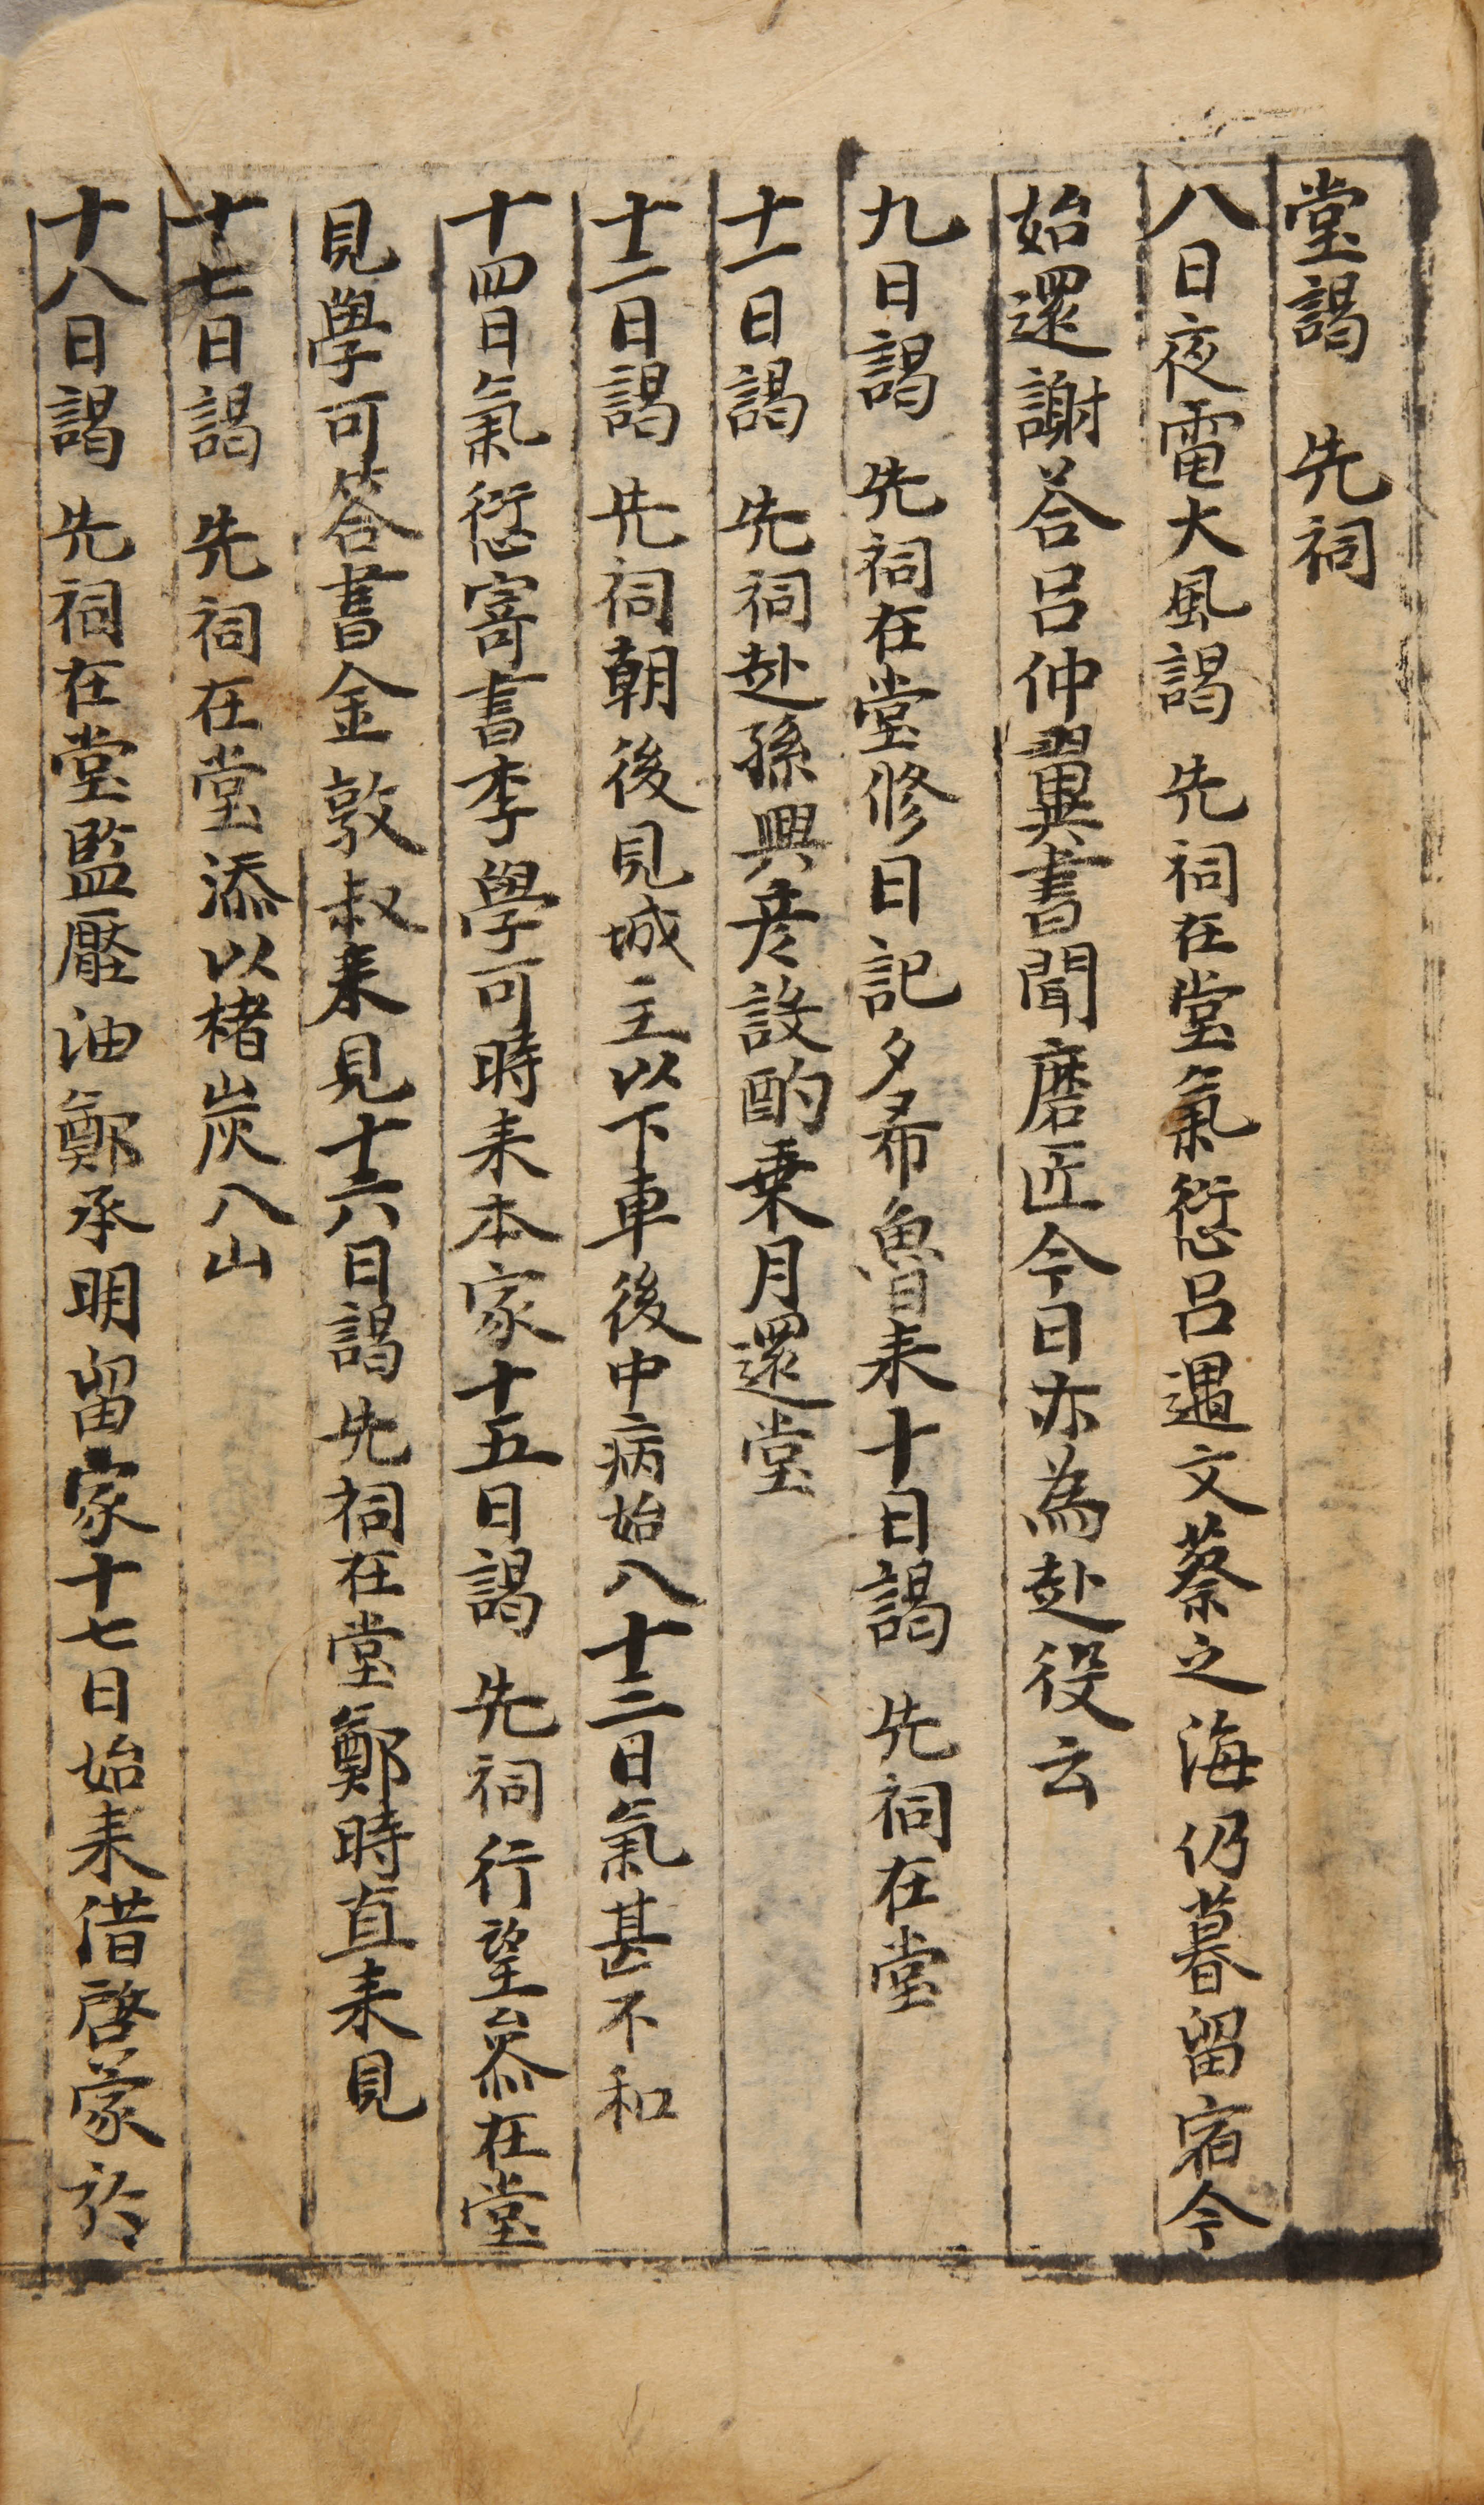 堂謁 先祠
八日夜雷大風謁 先祠在堂氣愆呂遇文蔡之海仍暮留宿今
始還謝答呂仲翼書聞磨匠今日亦為赴役云
九日謁 先祠在堂修日記夕希魯来十日謁 先祠在堂
十一日謁 先祠赴孫興彦設酌乗月還堂
十二日謁 先祠朝後見城主以下車後中病始入十三日氣甚不和
十四日氣愆寄書李學可時来本家十五日謁 先祠行望叅在堂
見學可答書金敦叔来見十六日謁 先祠在堂鄭時直来見
十七日謁 先祠在堂添以楮炭入山
十八日謁 先祠在堂監壓油鄭承明留家十七日始来借啓蒙於